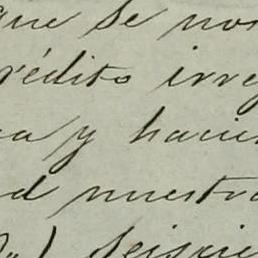 que se nos
rédito irre
a y hacie
d nuestra
) seiscie